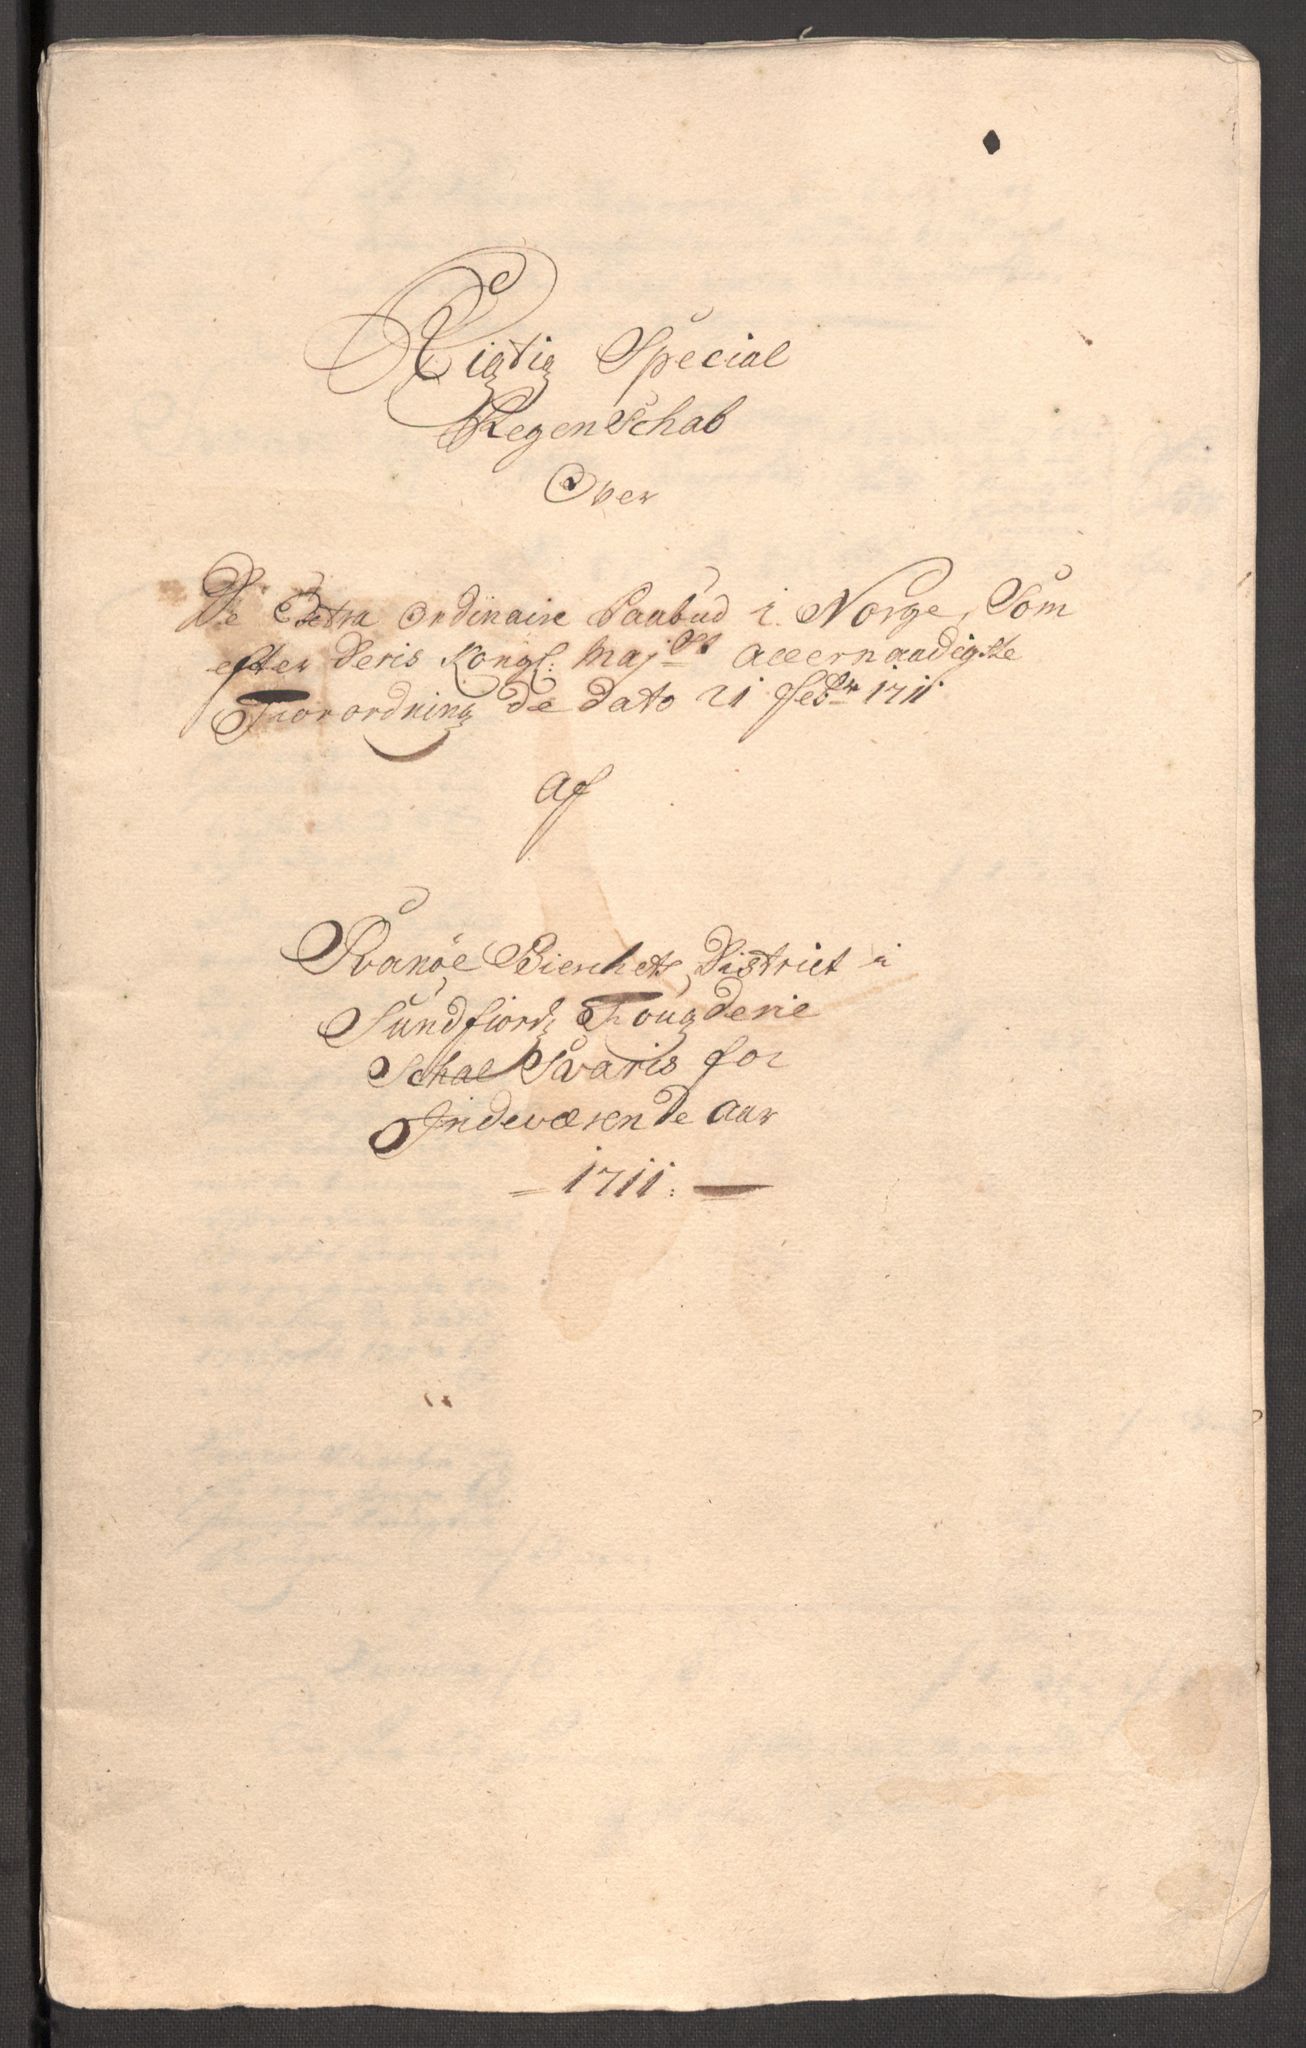 Rigtig Special
Regenschab
Over
De Extra Ordinaire Paabud i Norge, Som
efter Deris Kongl: Maj:sts Allernaadigste
Forordning De Dato 21 feb:r 1711
Af
Svanöe Bierchets District i
Sundfiords Fougderie
Schal Svaris for
Indeværende Aar
1711.